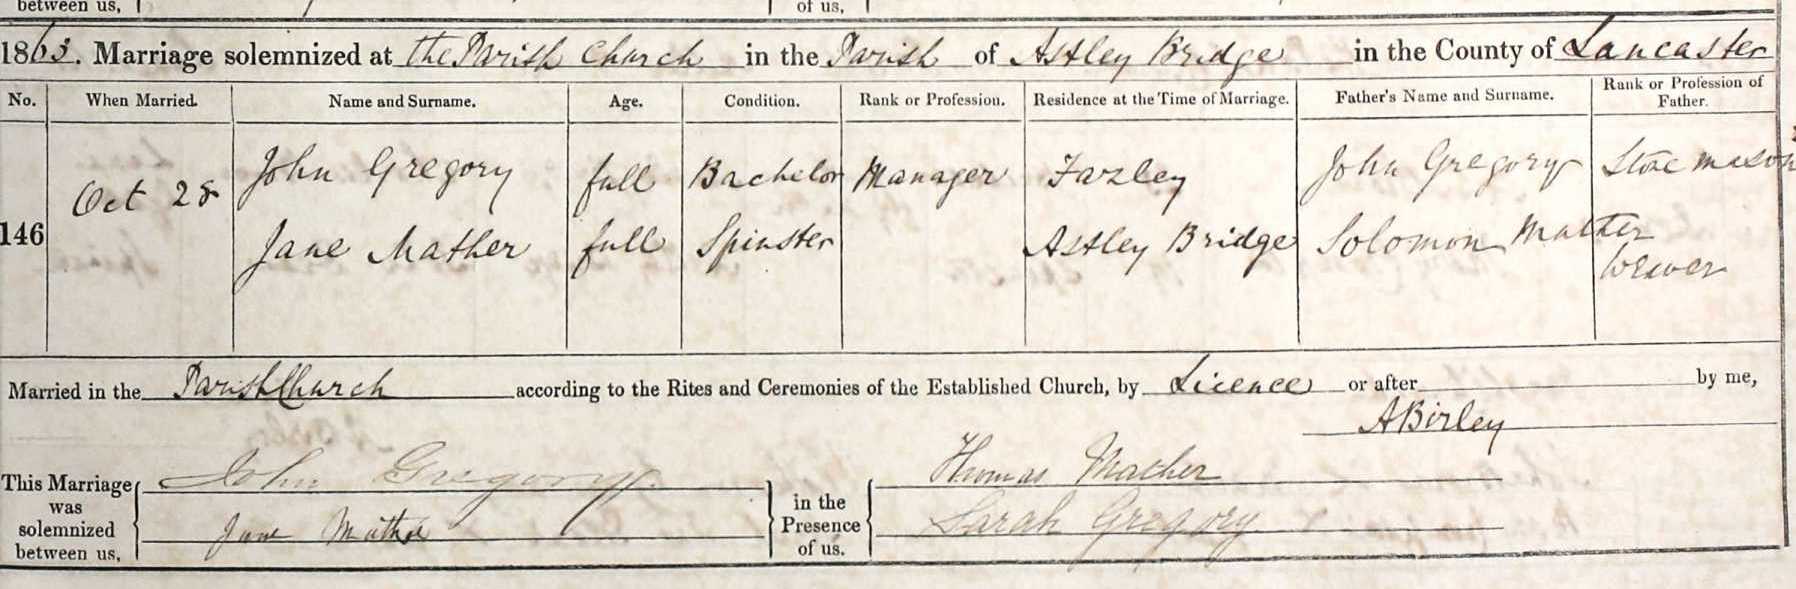 between us,
of us,
1863. Marriage solemnized at the Parish Church in the Parish of Astley Bridge in the County of Lancaster
No. When Married. Name and Surname. Age. Condition. Rank or Profession. Residence at the Time of Marriage. Father's Name and Surname. Rank or Profession of Father.
146 Oct 28 John Gregory full Bachelor Manager Fazley John Gregory Stone mason
Jane Mather full Spinster Astley Bridge Solomon Mather Weaver
Married in the Parish Church according to the Rites and Ceremonies of the Established Church, by Licence or after by me,
A Birley
This Marriage was solemnized between us, John Gregory
Jane Mather
in the Presence of us. Thomas Mather
Sarah Gregory